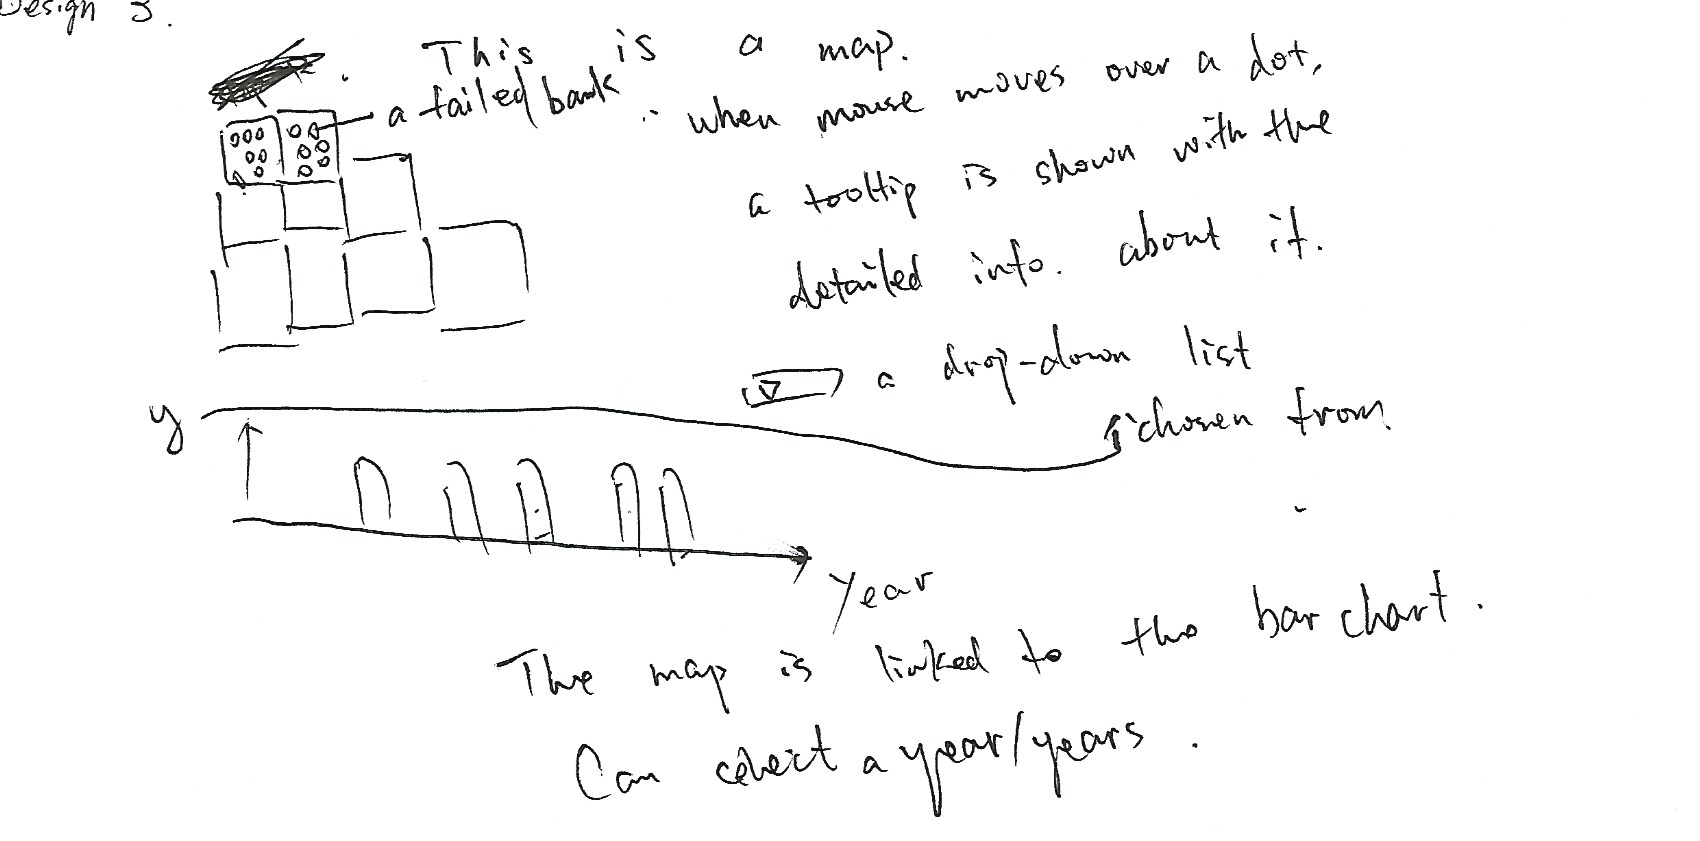 Design 3.
This is a map.
a failed bank
when mouse moves over a dot,
a tooltip is shown with the
detailed info. about it.
a drop-down list
y
chosen from
Year
The map is linked to the bar chart.
Can select a year/years.